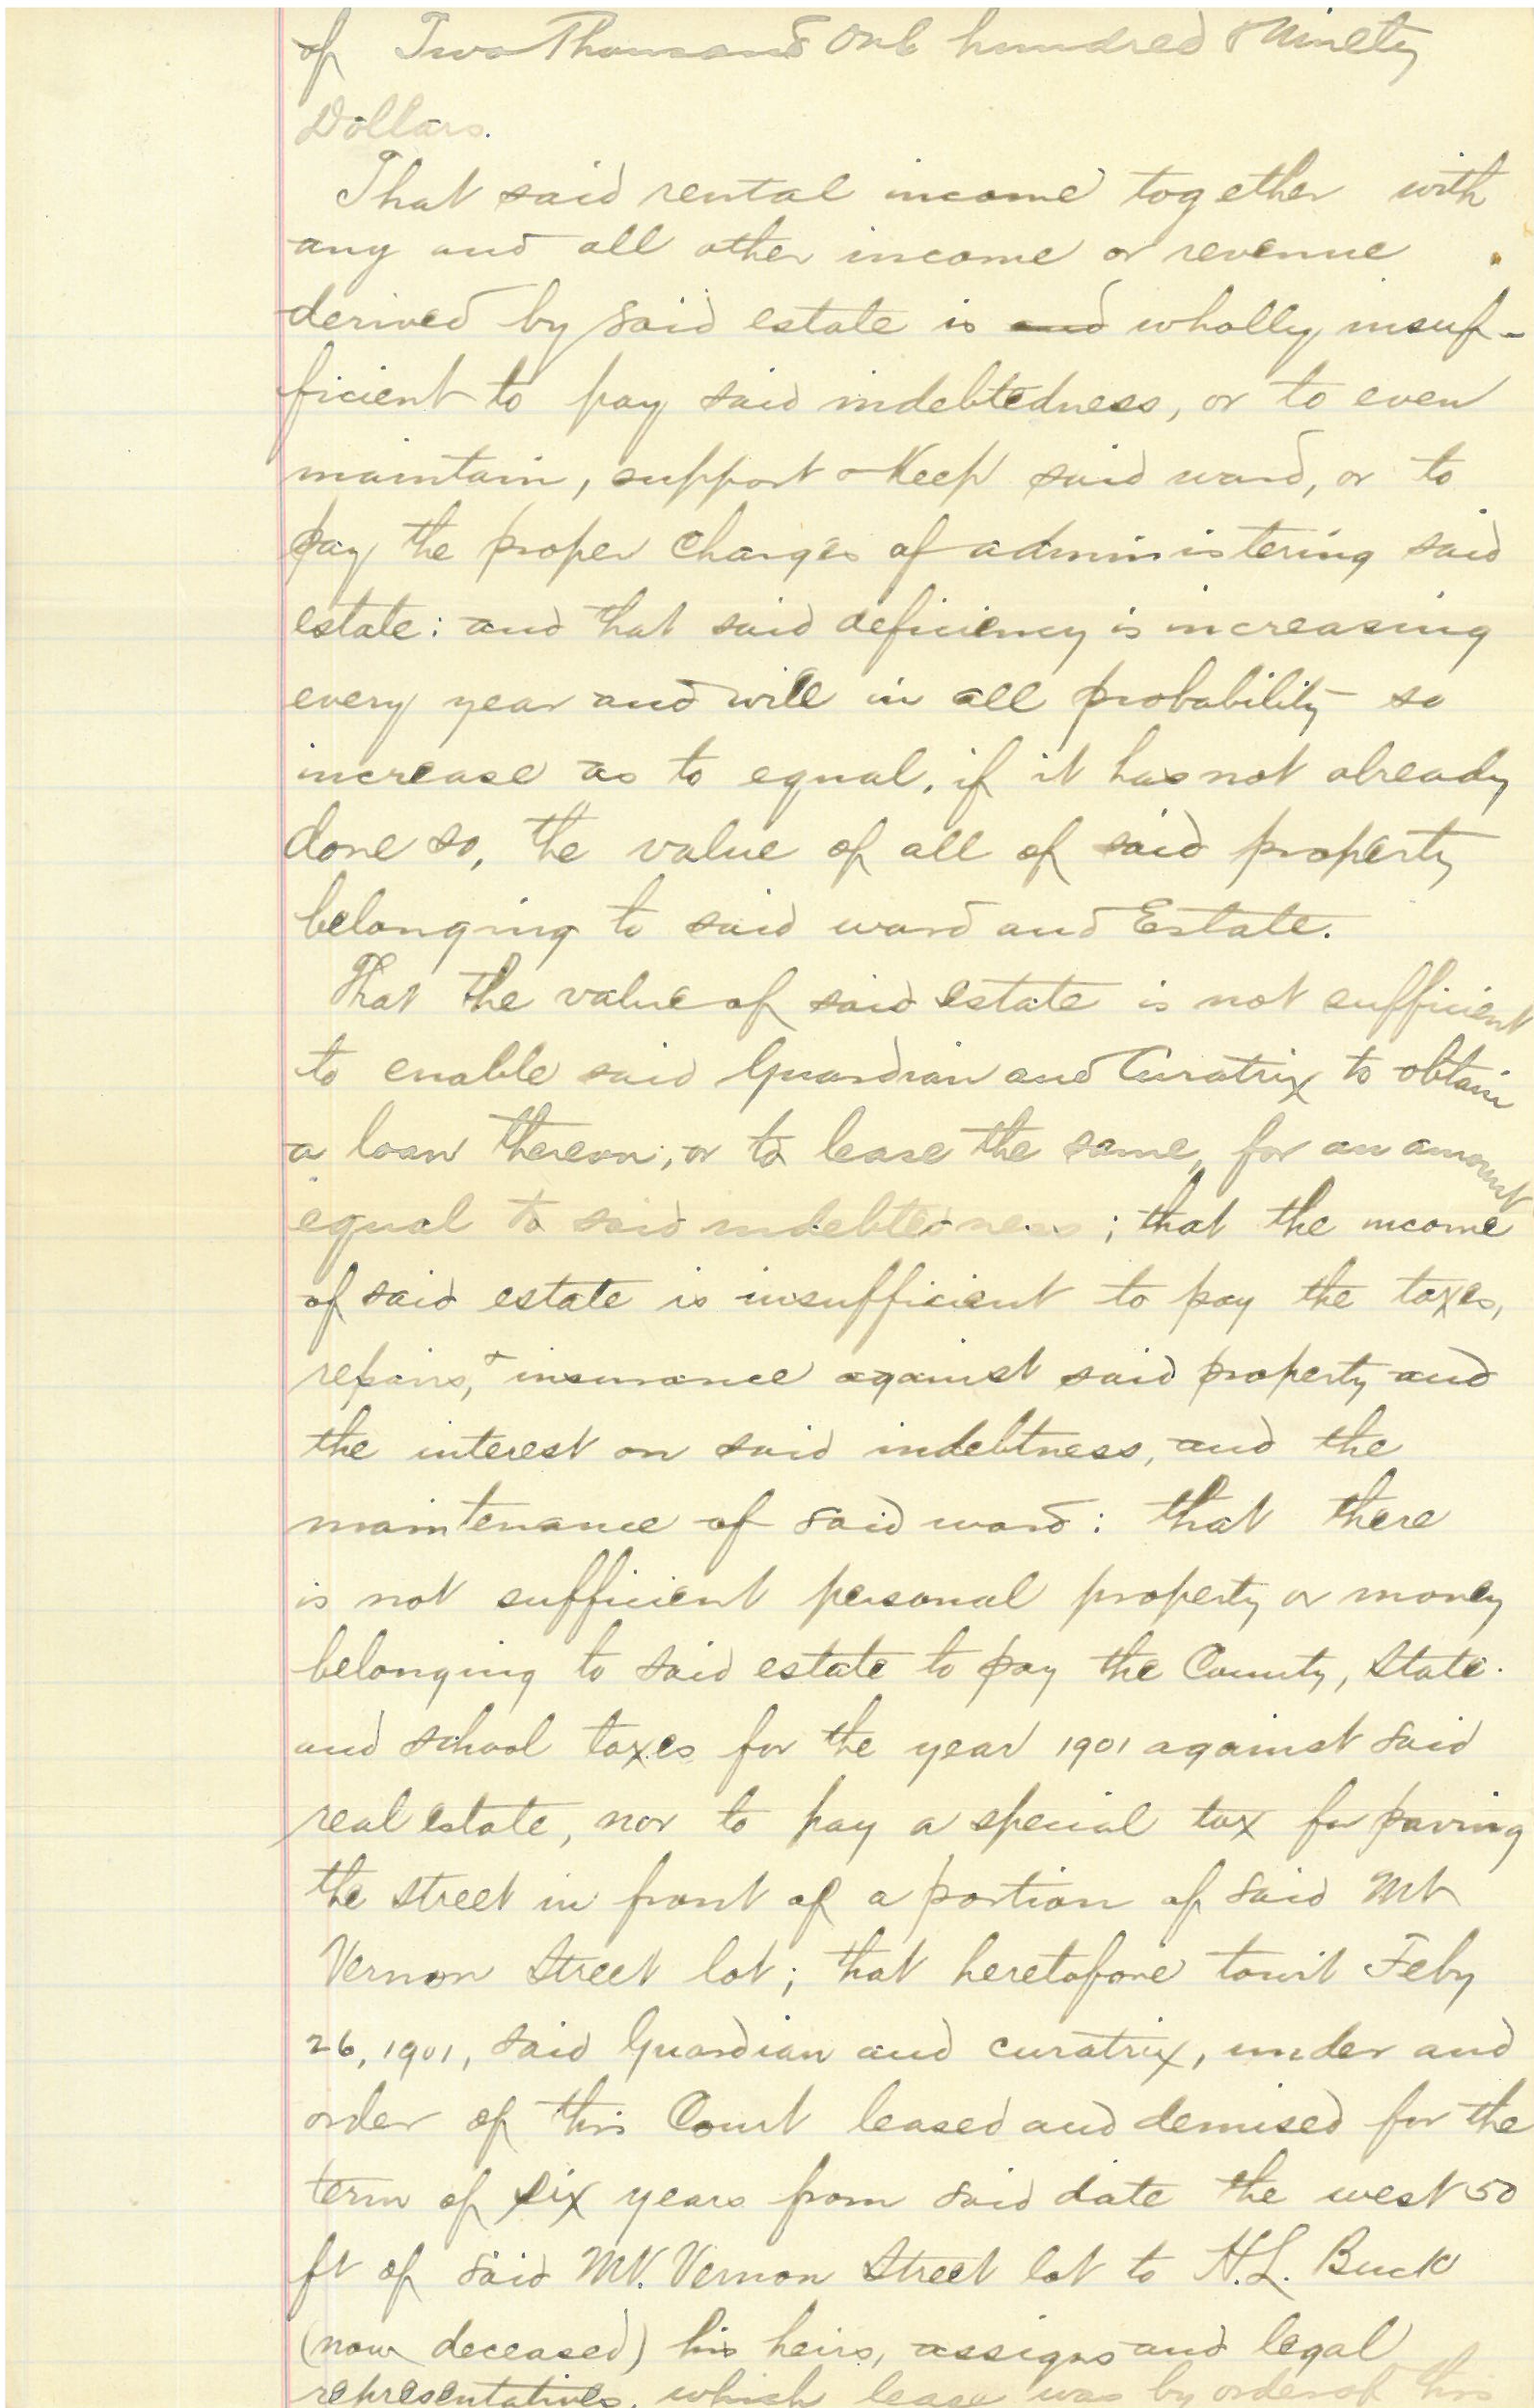 of Two Thousand One hundred & Ninety
Dollars.
That said rental income together with
any and all other income or revenue
derived by said estate is and wholly insuf-
ficient to pay said indebtedness, or to even
maintain, support & Keep said ward, or to
pay the proper charges of administering said
estate: and that said deficiency is increasing
every year and will in all probability so
increase as to equal, if it has not already
done so, the value of all of said property
belonging to said ward and Estate.
That the value of said estate is not sufficient
to enable said Guardian and Curatrix to obtain
a loan thereon, or to lease the same, for an amount
equal to said indebtedness; that the income
of said estate is insufficient to pay the taxes,
repairs, & insurance against said property and
the interest on said indebtness, and the
maintenance of said ward: that there
is not sufficient personal property or money
belonging to said estate to pay the County, State.
and school taxes for the year 1901 against said
real estate, nor to pay a special tax for paving
the street in front of a portion of said Mt
Vernon Street lot; that heretofore towit Feby
26, 1901, said Guardian and curatrix, under and
order of this Court leased and demised for the
term of six years from said date the west 50
ft of said Mt. Vernon Street lot to H.L. Buck
(now deceased) his heirs, assigns and legal
representatives, which lease was by order of this